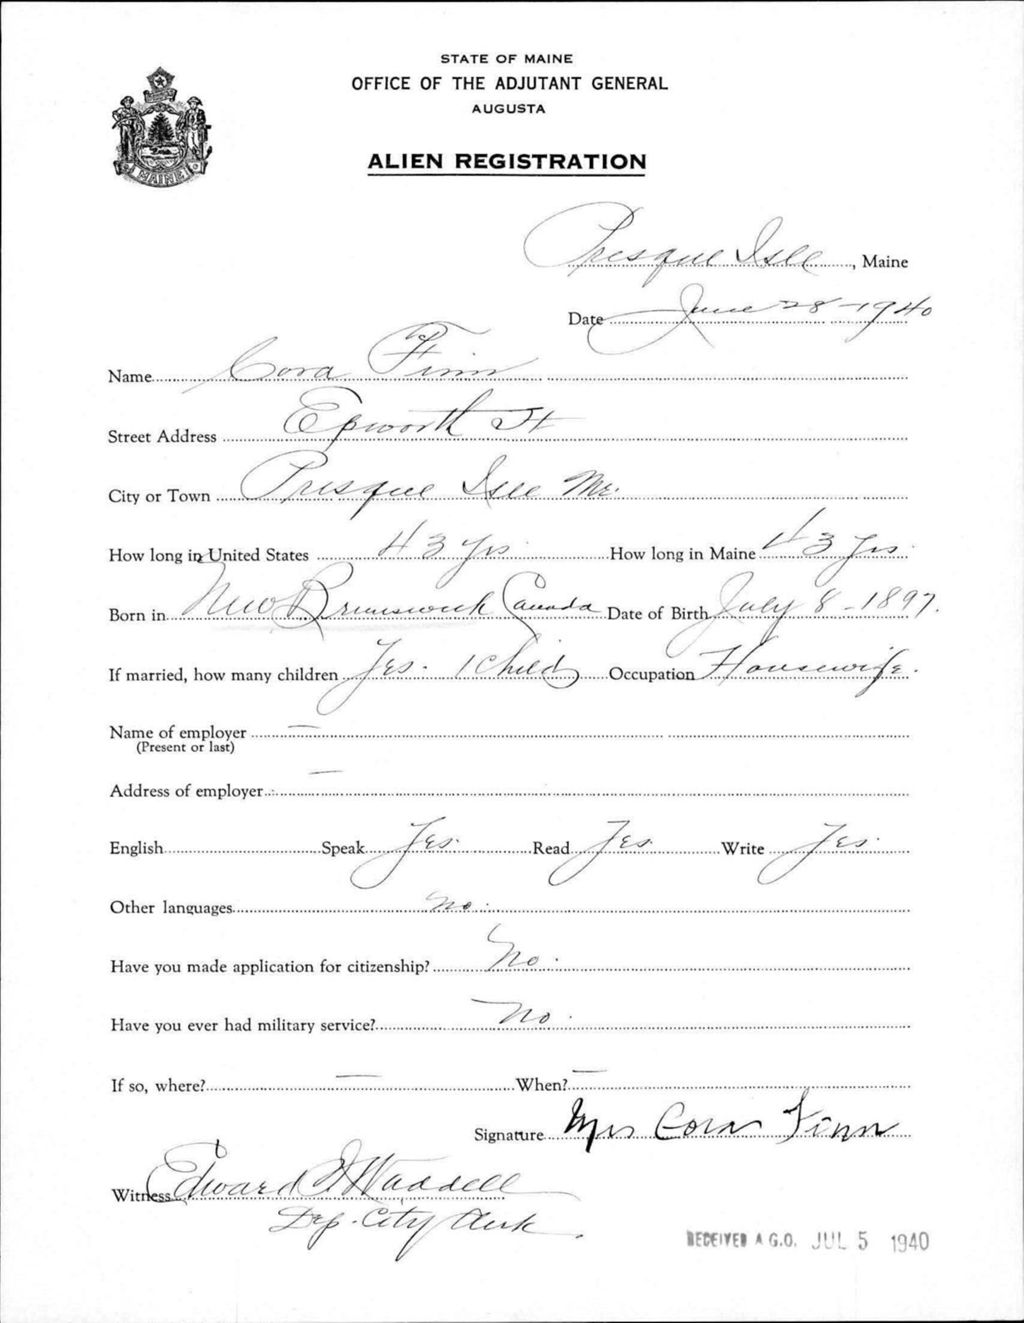 STATE OF MAINE
OFFICE OF THE ADJUTANT GENERAL
AUGUSTA
MAINE
ALIEN REGISTRATION
Presque Isle, Maine
Date June 28-1940
Name Cora Finn
Street Address Epworth St
City or Town Presque Isle Me.
How long in United States 43 Yrs How long in Maine 43 Yrs.
Born in New Brunswick Canada Date of Birth July 8-1897.
If married, how many children Yes. 1 Child Occupation Housewife.
Name of employer —
(Present or last)
Address of employer —
English Speak Yes. Read Yes. Write Yes.
Other languages No.
Have you made application for citizenship? No.
Have you ever had military service? No.
If so, where? — When? —
Signature Mrs Cora Finn
Witness Edward I Waddell
Dep. City Clerk.
RECEIVED A.G.O. JUL 5 1940